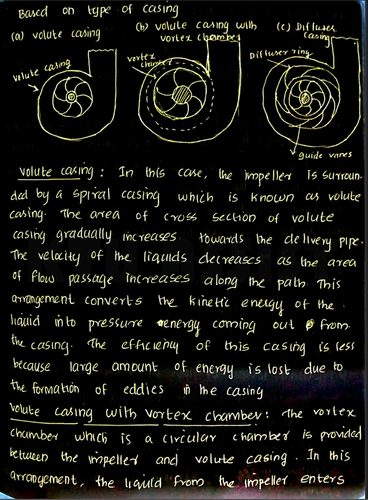 Based on type of casing
(a) volute casing
(b) volute casing with
vortex chamber
(c) Diffuser
casing
volute casing
vortex
chamber
Diffuser ring
guide vanes
volute casing : In this case, the impeller is surroun-
ded by a spiral casing which is known as volute
casing. The area of cross section of volute
casing gradually increases towards the delivery pipe.
The velocity of the liquids decreases as the area
of flow passage increases along the path This
arrangement converts the kinetic energy of the
liquid into pressure energy coming out from
the casing. The efficieny of this casing is less
because large amount of energy is lost due to
the formation of eddies in the casing
Volute casing with vortex chamber: The vortex
chamber which is a circular chamber is provided
between the impeller and volute casing. In this
arrangement, the liquid from the impeller enters